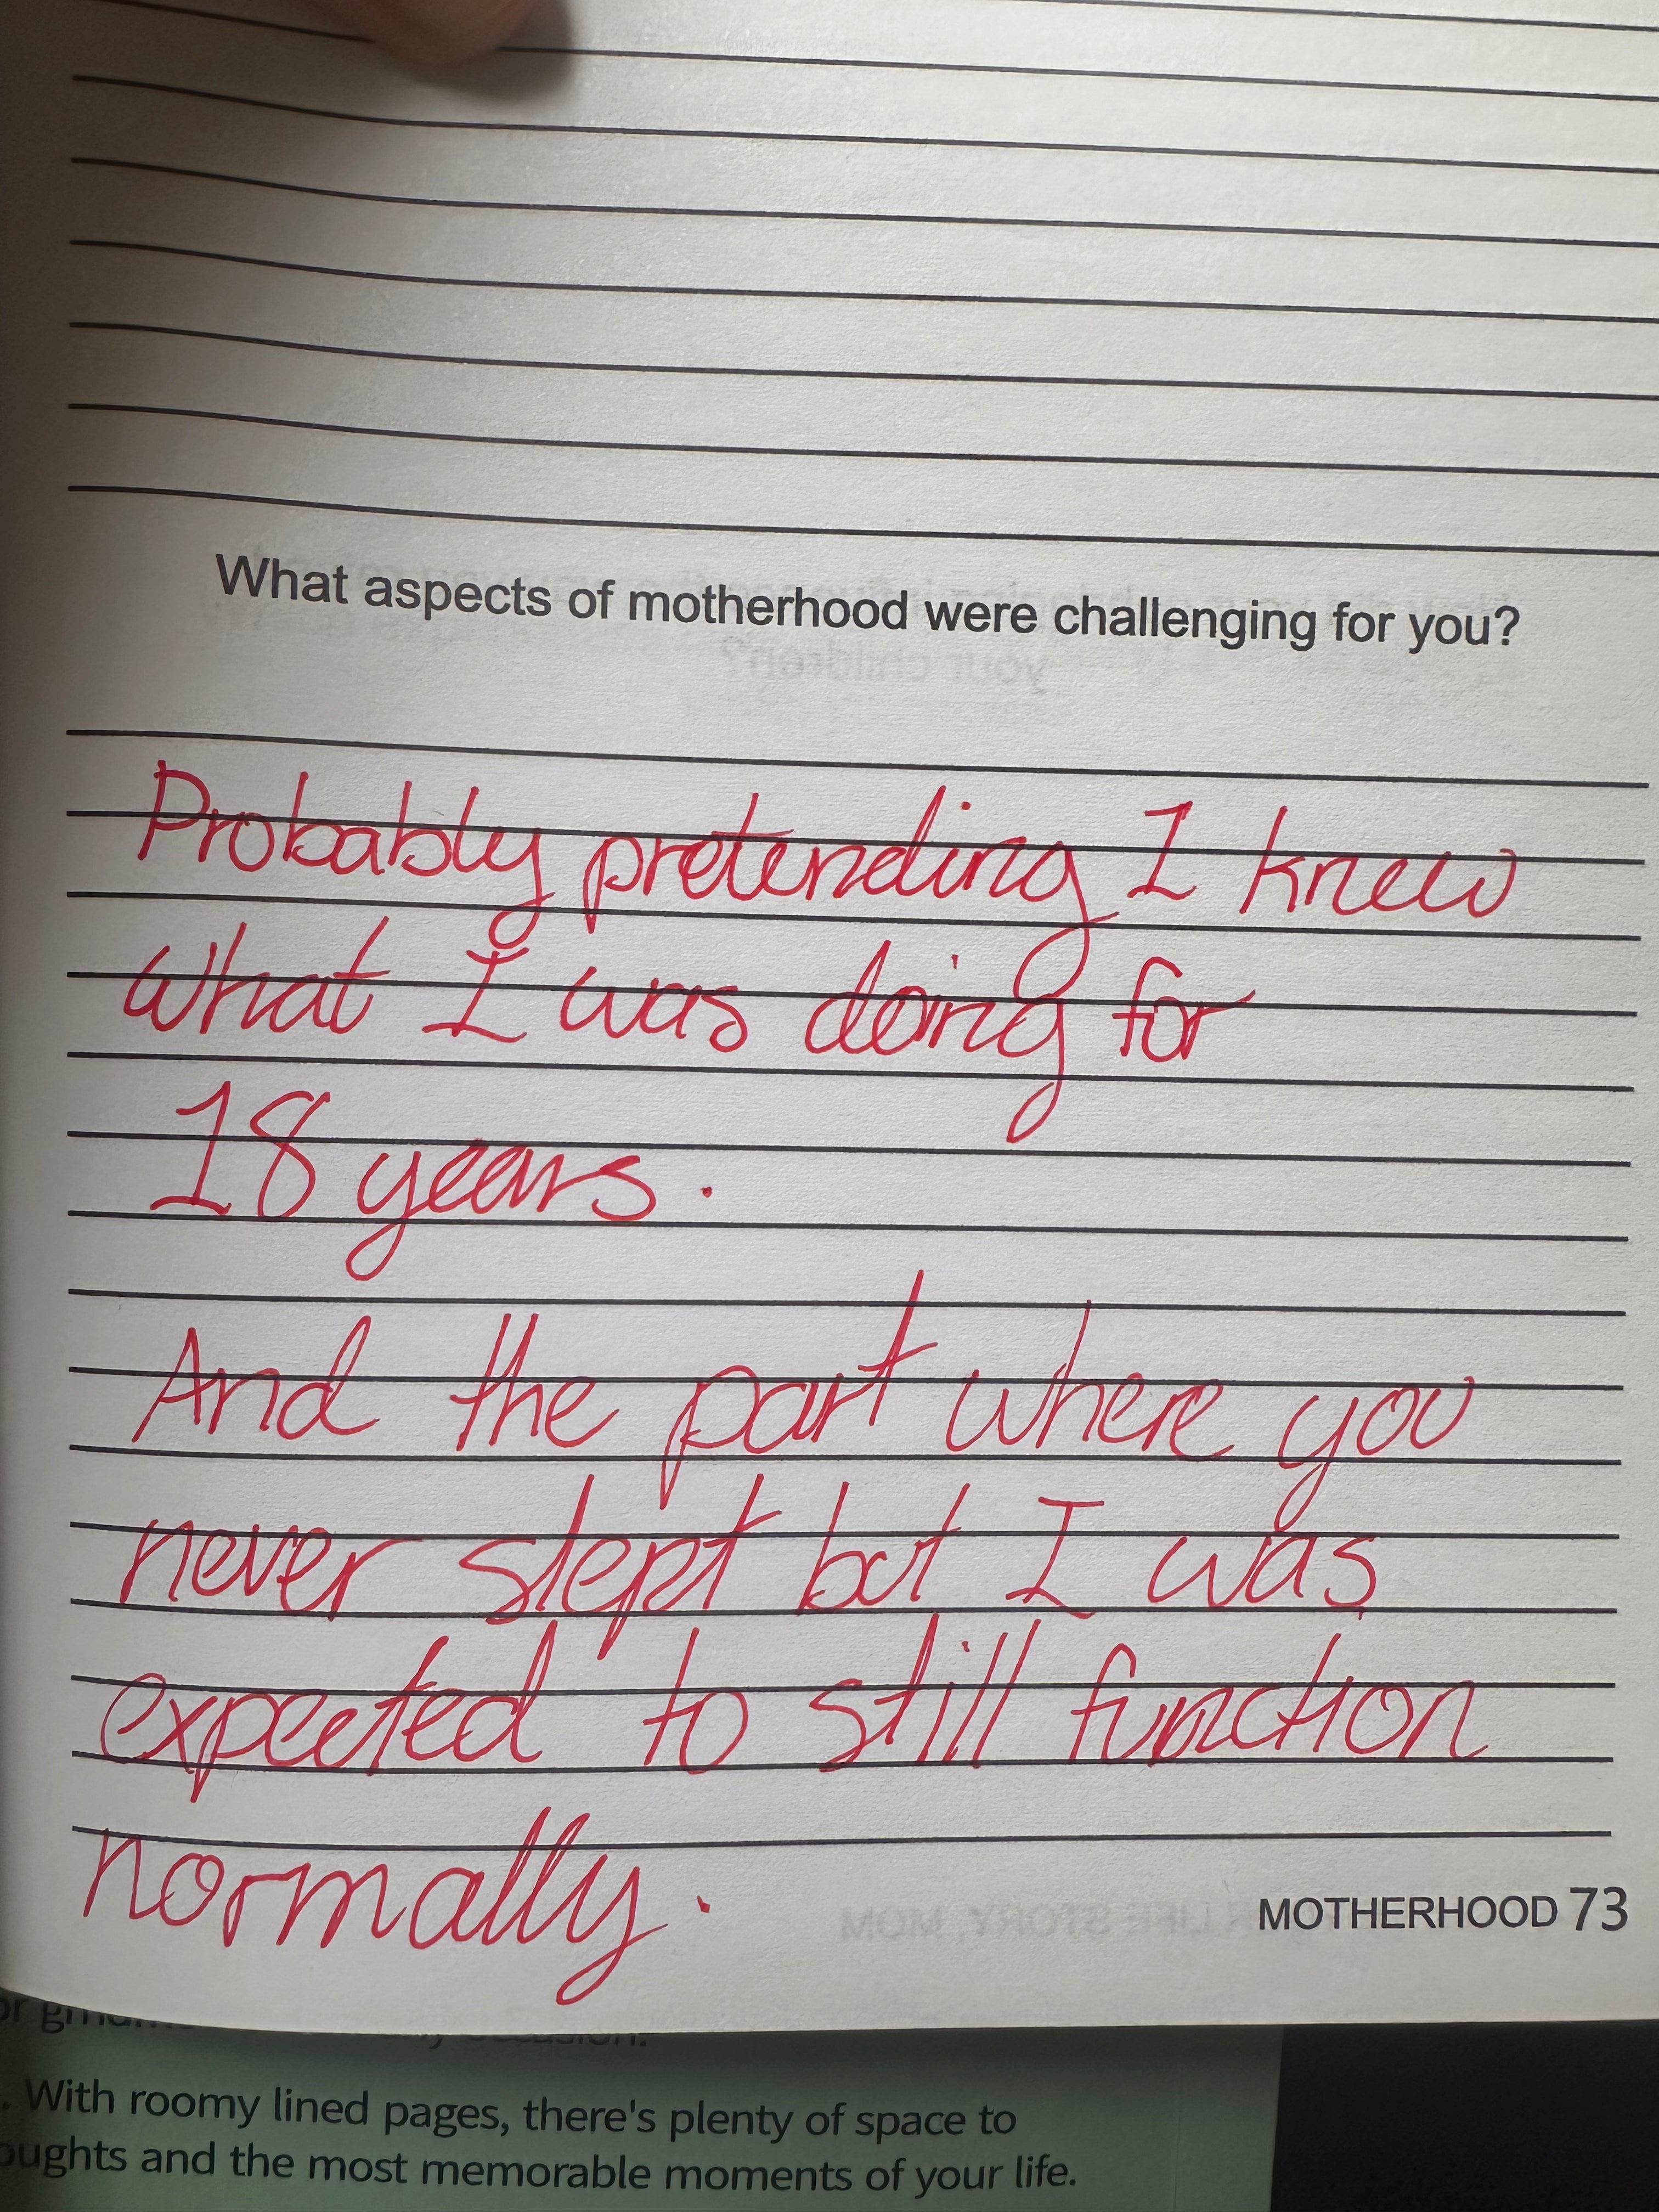 What aspects of motherhood were challenging for you?
Probably pretending I knew
what I was doing for
18 years.
And the part where you
never slept but I was
expected to still function
normally.
MOTHERHOOD 73
. With roomy lined pages, there's plenty of space to
oughts and the most memorable moments of your life.